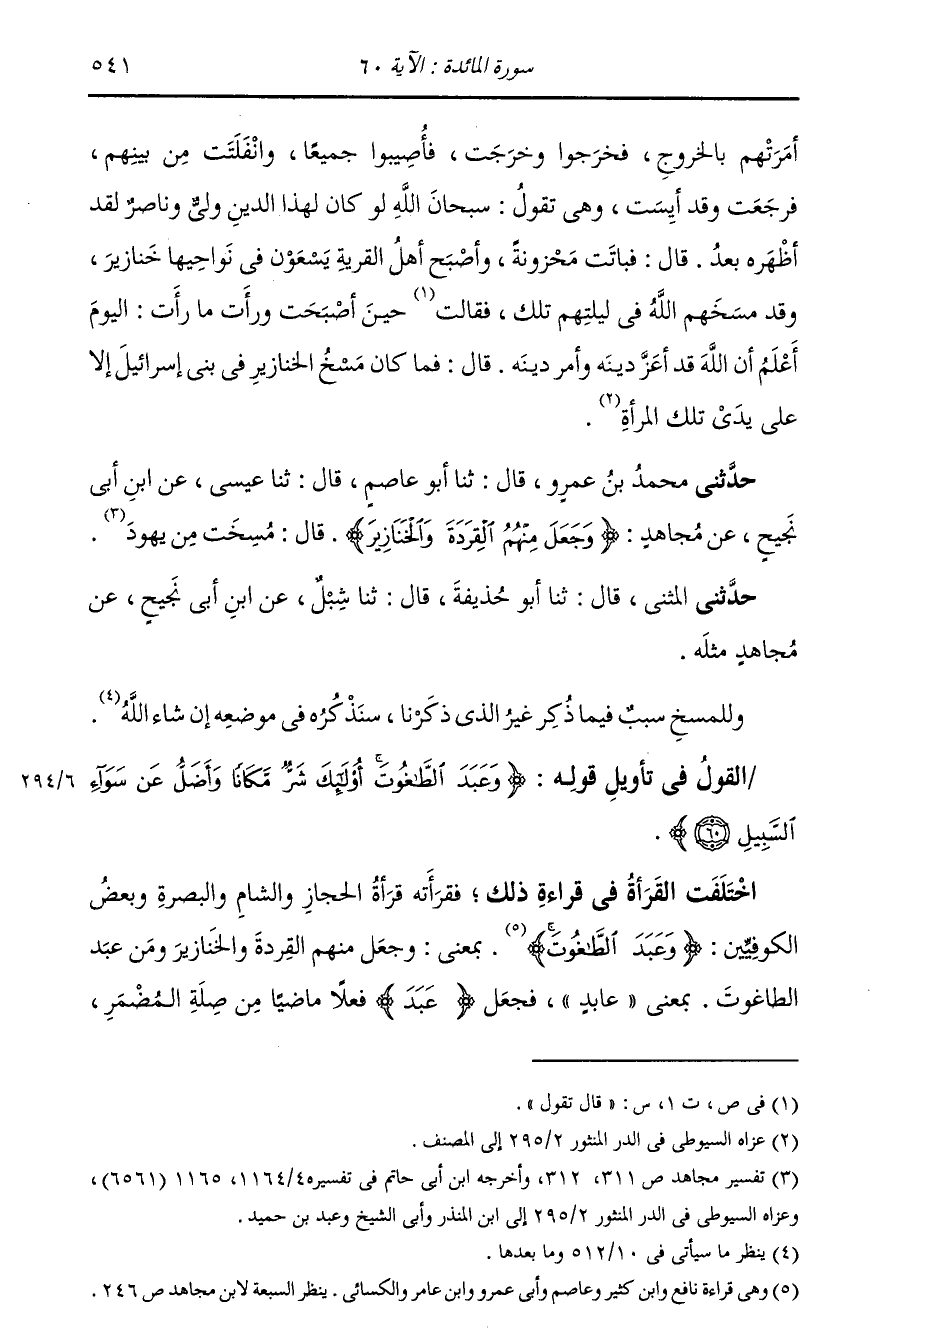 سورة المائدة : الآية ٦٠
٥٤١
أمَرَتْهم بالخروجِ ، فخرَجوا وخرَجَت ، فأُصِيبوا جميعًا ، وانْفَلَتَت مِن بينِهم ،
فرجَعَت وقد أيِسَت ، وهى تقولُ : سبحانَ اللَّهِ لو كان لهذا الدينِ ولىٌّ وناصرٌ لقد
أظْهَره بعدُ . قال : فباتَت مَحْزونةً ، وأصْبَح أهلُ القريةِ يَسْعَوْن فى نَواحِيها خَنازيرَ ،
وقد مسَخَهم اللَّهُ فى ليلتِهم تلك ، فقالت (١) حينَ أصْبَحَت ورأَت ما رأَت : اليومَ
أَعْلَمُ أن اللَّهَ قد أعَزَّ دينَه وأمر دينَه . قال : فما كان مَسْخُ الخنازيرِ فى بنى إسرائيلَ إلا
على يدَىْ تلك المرأةِ (٢) .
حدَّثنى محمدُ بنُ عمرٍو ، قال : ثنا أبو عاصمٍ ، قال : ثنا عيسى ، عن ابنِ أبى
نَجيحٍ ، عن مُجاهدٍ : ﴿ وَجَعَلَ مِنْهُمُ ٱلْقِرَدَةَ وَٱلْخَنَازِيرَ ﴾ . قال : مُسِخَت مِن يهودَ (٣) .
حدَّثنى المثنى ، قال : ثنا أبو حُذيفةَ ، قال : ثنا شِبْلٌ ، عن ابنِ أبى نَجيحٍ ، عن
مُجاهدٍ مثلَه .
وللمسخِ سببٌ فيما ذُكِر غيرُ الذى ذكَرْنا ، سنَذْكُرُه فى موضعِه إن شاء اللَّهُ (٤) .
/القولُ فى تأويلِ قولِه : ﴿ وَعَبَدَ ٱلطَّٰغُوتَۚ أُوْلَٰٓئِكَ شَرٌّ مَّكَانًا وَأَضَلُّ عَن سَوَآءِ ٢٩٤/٦
ٱلسَّبِيلِ ٦٠ ﴾ .
اخْتَلَفَت القَرَأةُ فى قراءةِ ذلك ؛ فقرَأَته قرَأةُ الحجازِ والشامِ والبصرةِ وبعضُ
الكوفِيِّين : ﴿ وَعَبَدَ ٱلطَّٰغُوتَۚ ﴾ (٥) . بمعنى : وجعَل منهم القِردةَ والخَنازيرَ ومَن عبَد
الطاغوتَ . بمعنى « عابدٍ » ، فجعَل ﴿ عَبَدَ ﴾ فعلًا ماضيًا مِن صِلَةِ المُضْمَرِ ،
(١) فى ص ، ت ١، س : « قال تقول » .
(٢) عزاه السيوطى فى الدر المنثور ٢٩٥/٢ إلى المصنف .
(٣) تفسير مجاهد ص ٣١١، ٣١٢، وأخرجه ابن أبى حاتم فى تفسيره ١١٦٤/٤، ١١٦٥ (٦٥٦١) ،
وعزاه السيوطى فى الدر المنثور ٢٩٥/٢ إلى ابن المنذر وأبى الشيخ وعبد بن حميد .
(٤) ينظر ما سيأتى فى ٥١٢/١٠ وما بعدها .
(٥) وهى قراءة نافع وابن كثير وعاصم وأبى عمرو وابن عامر والكسائى . ينظر السبعة لابن مجاهد ص ٢٤٦ .